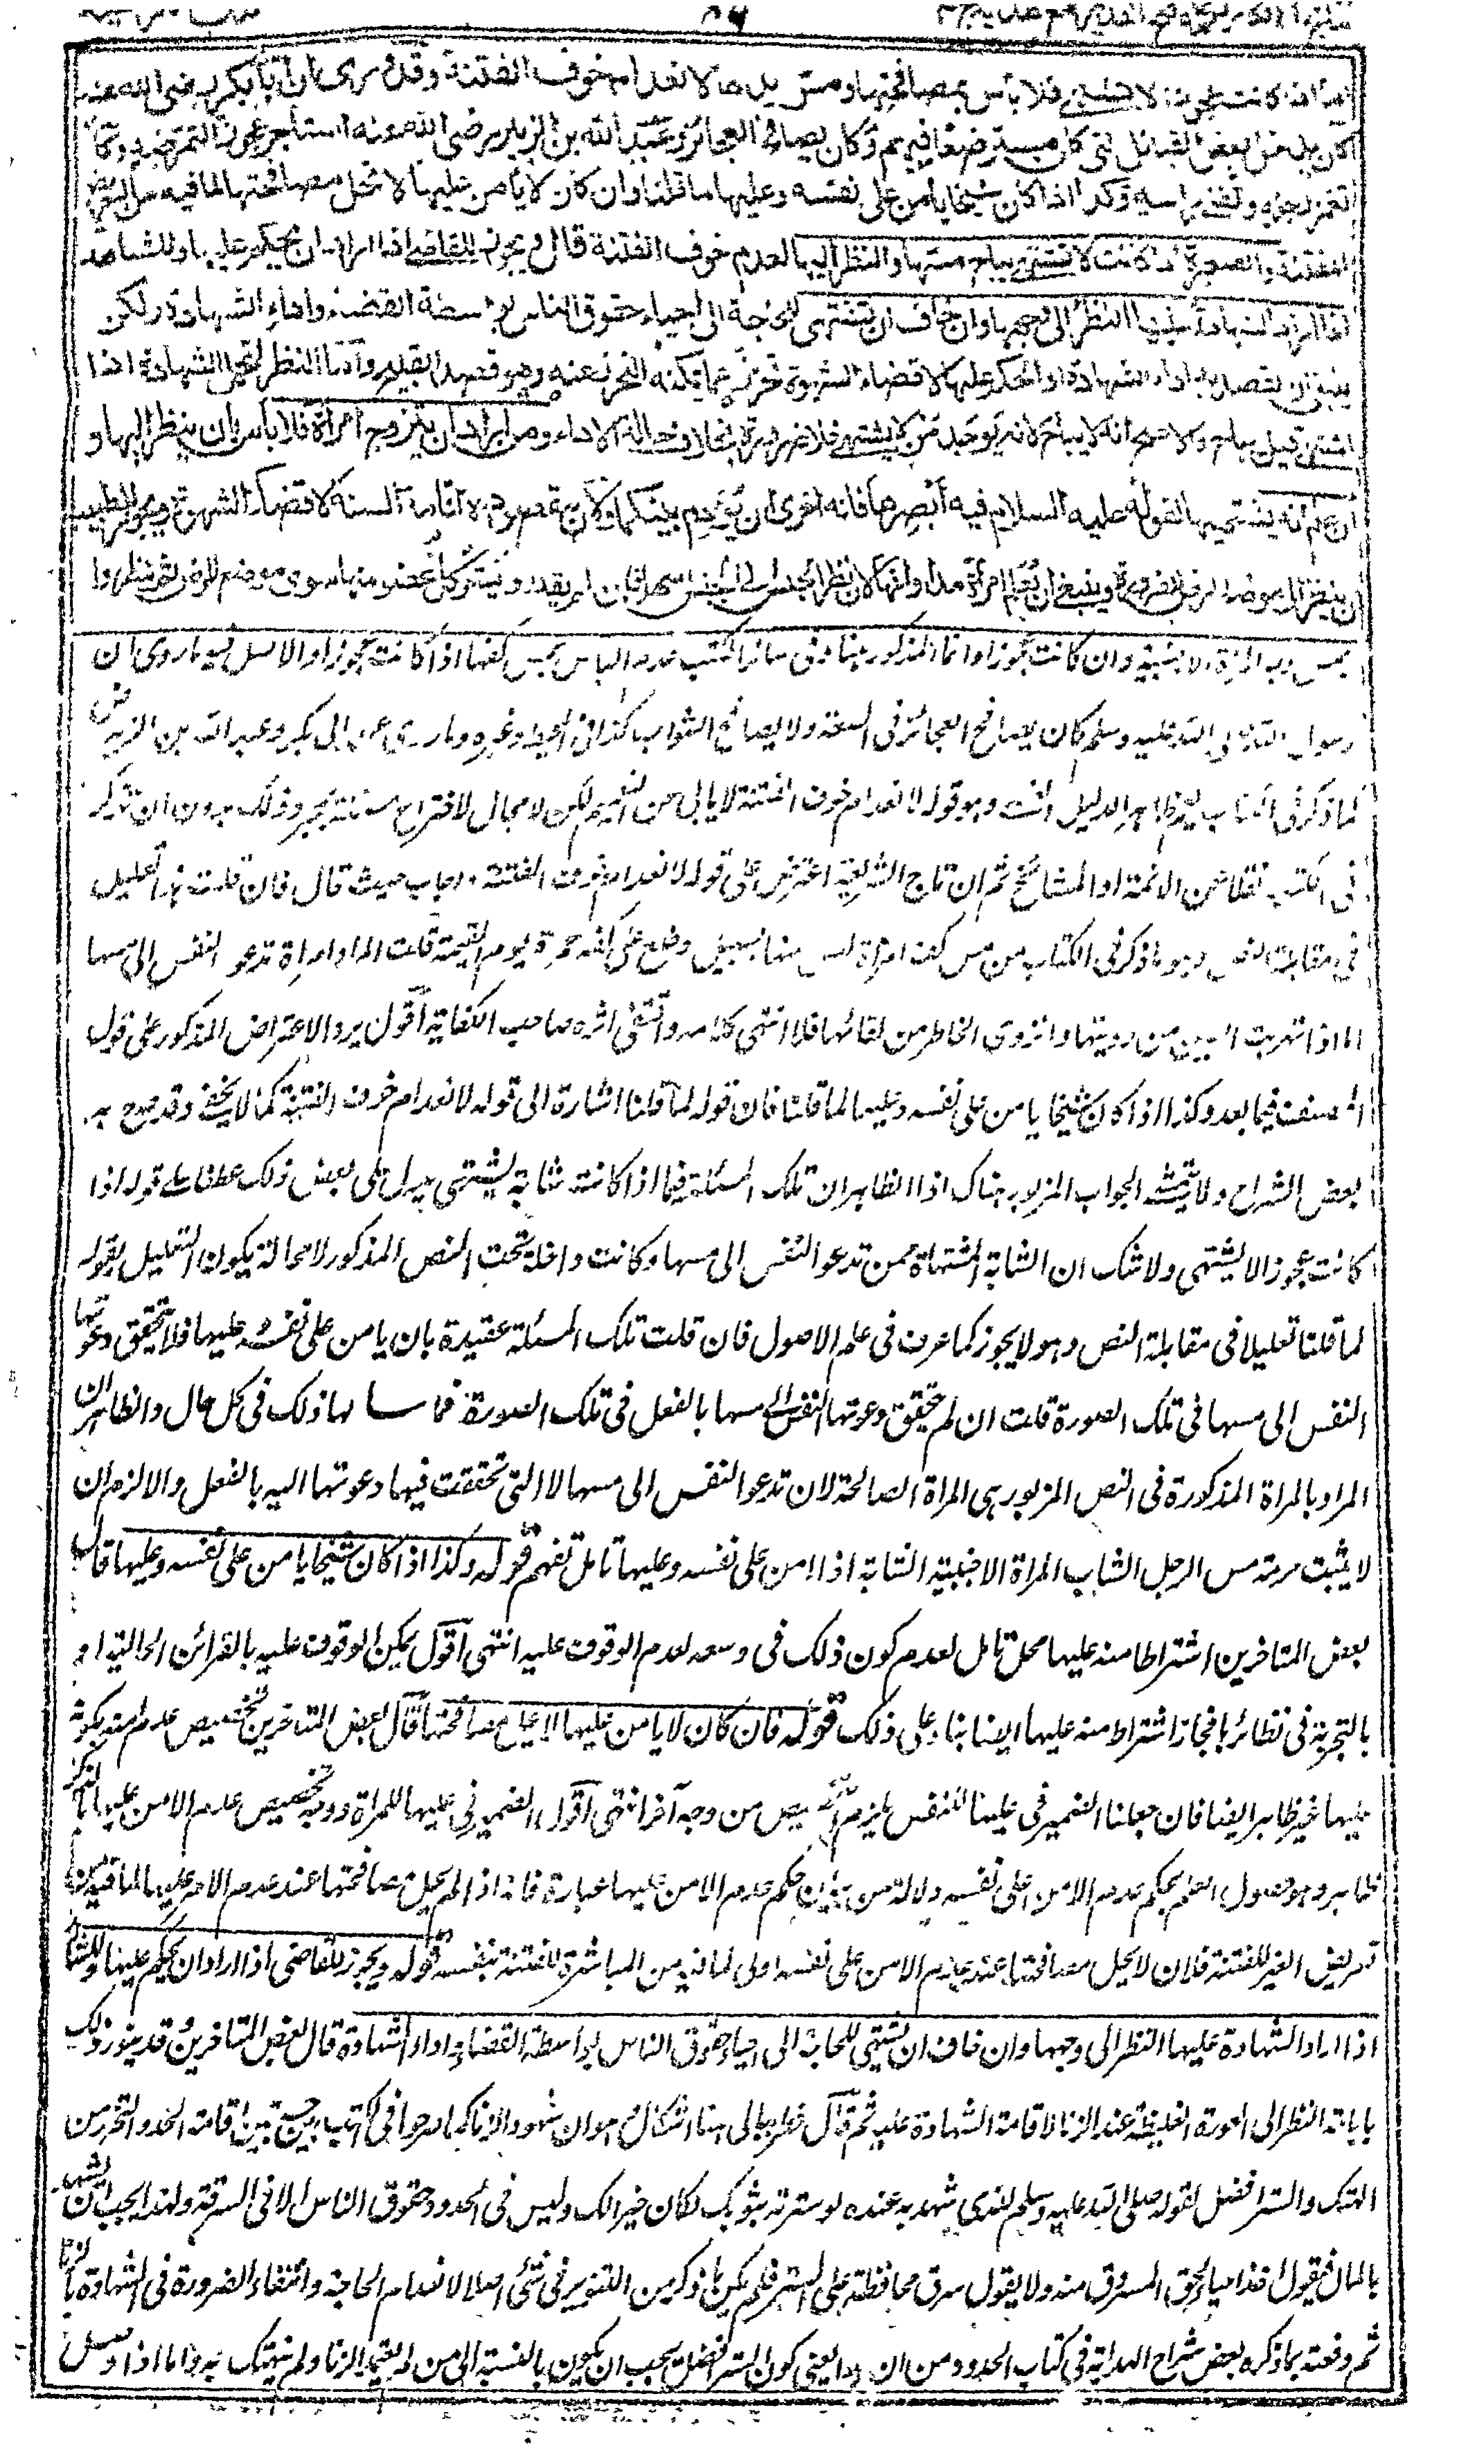 اما اذا كانت عجوزا لا تشتهى فلا بأس بمصافحتها ومس يدها لانعدام خوف الفتنة وقد روى ان أبا بكر رضى الله عنه
كان يدخل بعض القبائل التى كان مسترضعا فيهم وكان يصافح العجائز وعبد الله بن الزبير رضى الله عنه استأجر عجوزا لتمرضه وكانت
تغمز رجليه وتفلى راسه وكذا اذا كان شيخا يأمن على نفسه وعليها لما قلنا وان كان لا يأمن عليها لا تحل مصافحتها لما فيه من التعريض
للفتنة والصغيرة اذا كانت لا تشتهى يباح مسها والنظر اليها لعدم خوف الفتنة قال ويجوز للقاضى اذا اراد ان يحكم عليها وللشاهد
اذا اراد الشهادة عليها النظر الى وجهها وان خاف ان يشتهى للحاجة الى احياء حقوق الناس بواسطة القضاء واداء الشهادة ولكن
ينبغى ان يقصد به اداء الشهادة او الحكم عليها لا قضاء الشهوة تحرزا عما يمكنه التحرز عنه وهو قصد القبيح وأما النظر لتحمل الشهادة اذا
اشتهى قيل يباح والاصح انه لا يباح لانه يوجد من لا يشتهى فلا ضرورة بخلاف حالة الاداء ومن اراد ان يتزوج امرأة فلا بأس بان ينظر اليها و
ان علم انه يشتهيها لقوله عليه السلام فيه أبصرها فانه احرى ان يؤدم بينكما ولان مقصوده اقامة السنة لا قضاء الشهوة ويجوز للطبيب
ان ينظر الى موضع المرض للضرورة وينبغى ان يعلم امرأة مداواتها لان نظر الجنس الى الجنس اسهل فان لم يقدروا يستر كل عضو منها سوى موضع المرض ثم ينظر وا
بمس وجه الاجنبية وان كانت عجوزا وانما المذكور هنا وفى سائر الكتب عدم الباس بمس كفها اذا كانت عجوزا والاصل فيه ما روى ان
رسول الله صلى الله عليه وسلم كان يصافح العجائز فى البيعة ولا يصافح الشواب كذا فى المحيط وغيره وما روى عن ابى بكر وعبد الله بن الزبير رض
كما ذكر فى الكتاب الدليل وهو قوله لانعدام خوف الفتنة لا يابى عن ولكن لا مجال لاختراع مسئلة بمجرد ذلك بدون ان تذكر
فى الكتب نقلا عن الائمة او المشائخ ثم ان تاج الشريعة اعترض على قوله لانعدام خوف الفتنة واجاب حيث قال فان قلت هذا تعليل
فى مقابلة النص وهو ما ذكر فى الكتاب من مس كف امراة ليس منها بسبيل وضع على كفه جمرة يوم القيمة قلت المراد امراة تدعو النفس الى مسها
اما اذا نهرت العين من رويتها وانزوى الخاطر من لقائها فلا انتهى كلامه واقتفى اثره صاحب الكفاية أقول يرد الاعتراض المذكور على قول
المصنف فيما بعد وكذا اذا كان شيخا يامن على نفسه وعليها لما قلنا فان قوله لما قلنا اشارة الى قوله لانعدام خوف الفتنة كما لا يخفى وقد صرح به
بعض الشراح ولا يتمشى الجواب المزبور هناك اذ الظاهر ان تلك المسئلة فيما اذا كانت شابة تشتهى يدل على بعض ذلك عطفا على قوله اذا
كانت عجوزا لا تشتهى ولا شك ان الشابة المشتهاة ممن تدعو النفس الى مسها وكانت داخلة تحت النص المذكور لا محالة يكون التعليل بقوله
لما قلنا تعليلا فى مقابلة النص وهو لا يجوز كما عرف فى علم الاصول فان قلت تلك المسئلة مقيدة بان يامن على نفسه وعليها فلا تحقق دعوتها
النفس الى مسها فى تلك الصورة قلت ان لم تحقق دعوتها النفس الى مسها بالفعل فى تلك الصورة فما ... لها ذلك فى كل حال والظاهر ان
المراد بالمراة المذكورة فى النص المزبور هى المراة الصالحة لان تدعو النفس الى مسها لا التى تحققت فيها دعوتها اليه بالفعل والا لزم ان
لا يثبت حرمة مس الرجل الشاب المراة الاجنبية الشابة اذا امن على نفسه وعليها تامل تفهم قوله وكذا اذا كان شيخا يامن على نفسه وعليها قال
بعض المتاخرين اشتراط امنه عليها محل تامل لعدم كون ذلك فى وسعه لعدم الوقوف عليه انتهى أقول يمكن الوقوف عليه بالقرائن الحالية او
بالتجربة فى نظائرها فجاز اشتراط امنه عليها ايضا بناء على ذلك قوله فان كان لا يامن عليها لا يحل مصافحتها قال بعض المتاخرين تخصيص عدم امنه بكونه
عليها غير ظاهر ايضا فان جعلنا الضمير فى عليها للنفس يلزم التخصيص من وجه آخر انتهى أقول الضمير فى عليها للمراة ووجه تخصيص عدم الامن عليها بالذكر
ظاهر وهو حصول العلم بحكم عدم الامن على نفسه دلالة من بيان حكم عدم الامن عليها عبارة فانه اذا لم يحل مصافحتها عند عدم الامن عليها لما فيه من
تعريض الغير للفتنة فلان لا يحل مصافحتها عند عدم الامن على نفسه اولى لما فيه من المباشرة للفتنة بنفسه قوله ويجوز للقاضى اذا اراد ان يحكم عليها وللشاهد
اذا اراد الشهادة عليها النظر الى وجهها وان خاف ان يشتهى للحاجة الى احياء حقوق الناس بواسطة القضاء واداء الشهادة قال بعض المتاخرين وقد ينور ذلك
باباحة النظر الى العورة الغليظة عند الزنا لاقامة الشهادة عليه ثم قال خطر ببالى هنا اشكال هو ان شهود الزنا كما صرحوا فى الكتاب بين حسبتين اقامة الحد والتحرز من
الهتك والستر افضل لقوله صلى الله عليه وسلم للذى شهد به عنده لو سترته بثوبك لكان خيرا لك وليس فى الحدود حقوق الناس الا فى السرقة ولهذا يجب ان يشهد
بالمال فيقول اخذ احياء لحق المسروق منه ولا يقول سرق محافظة على الستر فلم يكن ما ذكر من التنوير فى شئ اصلا لانعدام الحاجة وانتفاء الضرورة فى الشهادة بالزنا
ثم دفعته بما ذكره بعض شراح الهداية فى كتاب الحدود من ان هذا يعنى كون الستر افضل يجب ان يكون بالنسبة الى من لم يعتد الزنا ولم يتهتك به واما اذا وصل